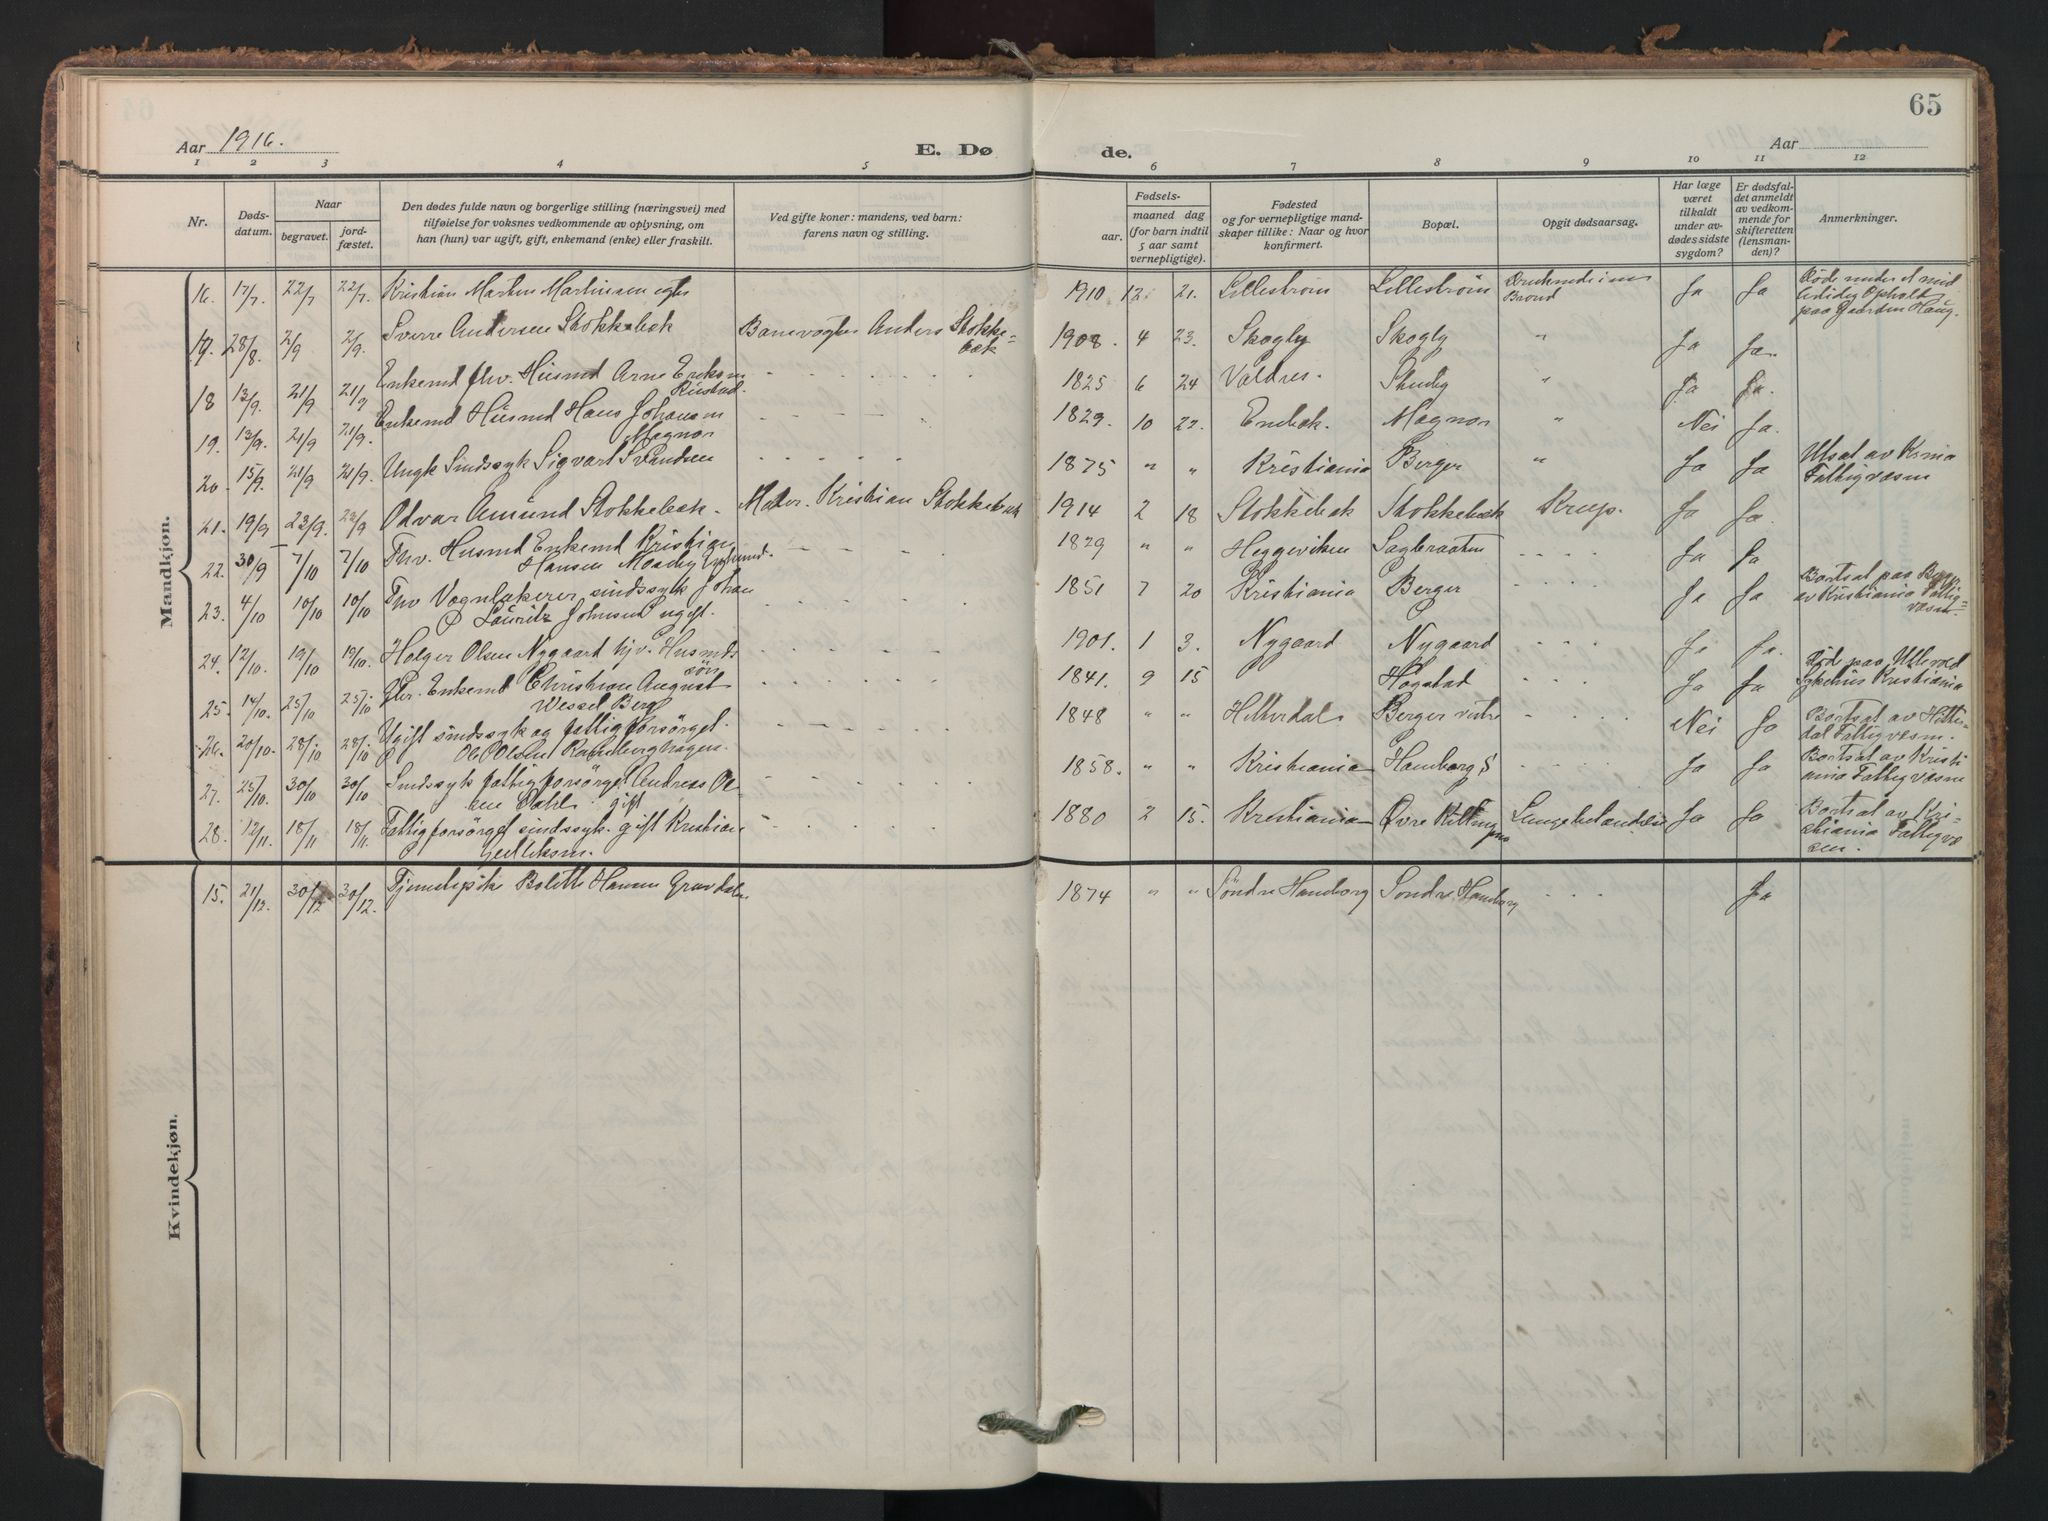 65
Aar 1916.
E. Dø
de.
Aar
1 2 3 4 5 6 7 8 9 10 11 12
Nr.
Døds-
datum.
Naar
begravet.
jord-
fæstet.
Den dødes fulde navn og borgerlige stilling (næringsvei) med
tilføielse for voksnes vedkommende av oplysning, om
han (hun) var ugift, gift, enkemand (enke) eller fraskilt.
Ved gifte koner: mandens, ved barn:
farens navn og stilling.
Fødsels-
aar.
maaned dag
(for barn indtil
5 aar samt
vernepligtige).
Fødested
og for vernepligtige mand-
skaper tillike: Naar og hvor
konfirmert.
Bopæl.
Opgit dødsaarsag.
Har læge
været
tilkaldt
under av-
dødes sidste
sygdom?
Er dødsfal-
det anmeldt
av vedkom-
mende for
skifteretten
(lensman-
den)?
Anmerkninger.
Mandkjøn.
16. 17/7. 22/7 22/7. Kristian Martin Martinsen 1910 12 21. Lillestrøm Lillestrøm Ja Ja Døde under et mid
lidig Ophold
paa Gaarden Haug.
Brond
19. 28/8. 2/9 2/9. Sverre Andersen Stokkebæk Banevogter Anders Stokke-
bæk 1908. 4 23. Skogly Skogly " Ja Ja
18 13/9. 21/9 21/9 Enkemd fhv. Husmd Arne Eriksen
Rustad. 1825 6 24 Valdres. " Ja Ja.
19. 13/9. 21/9 21/9. Enkemd Husmd Hans Johansen
Magnor 1829. 10 22. Enebak. Magnor " Nei Ja.
20. 15/9. 21/9 21/9. Ungk Sindssyk Sigvart Svendsen 1875 " " Kristiania Berger " Ja Ja Utsat av Krnia
Fattigvæsen
21. 19/9 23/9. 23/9 Odvar Amund Stokkebæk. Kristian Stokkebæk 1914 2 18 Stokkebæk Stokkebæk Krup. Ja Ja.
22. 30/9 7/10 7/10 Fhv. Husmd Enkemd Kristian
Hansen 1829 " " Heggeviken Sagbraaten Ja Ja
23. 4/10 10/10 10/10 Fhv Vognlakerer sindssyk Johan
Lauritz Johnsen ugift. 1851 7 20 Kristiania Berger Ja Ja Bortsat paa Berger
av Kristiania Fattig-
væsen.
24. 12/10. 19/10 19/10. Holger Olsen Nygaard hjv. Husmds
søn 1901. 1 3. Nygaard Nygaard Ja Ja.
25. 14/10. 25/10 25/10 Fhv. Enkemd Christian August
Wessel Berg 1841. 9 15 Høgstad Ja Ja Død paa Ullevold
Sykehus Kristiania
26. 20/10. 28/10 28/10 Ugift sindssyk og fattigforsørget.
Ole Olsen 1848 " " Hitterdal Berger vestre Nei Ja Bortsat av Hitter
dal Fattigvesen.
27. 25/10. 30/10 30/10 Sindssyk fattigforsørget Andreas Ol
sen Dahl gift 1858. " " Kristiania Homborg S Ja Ja Bortsat av Kristi
ania Fattigvæsen
28. 12/11. 18/11 18/11. Fattigforsørget sindssyk. gift Kristian
1880 2 15. Kristiania Øvre Kitling Lungebetændelse Ja Ja Bortsat av Kri-
stiania Fattigvæ
sen.
Kvindekjøn.
15. 21/12. 30/12 30/12. Tjenestepike Bolette Hansen Gravdalen 1874 " " Søndre Homborg Søndre Homborg Ja